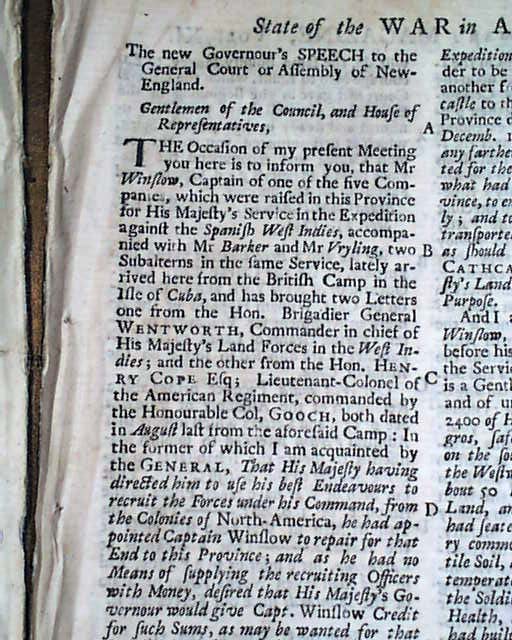 State of the WAR in A
The new Governour's SPEECH to the
General Court or Aſſembly of New-
England.
Gentlemen of the Council, and Houſe of
Repreſentatives,
THE Occaſion of my preſent Meeting
you here is to inform you, that Mr
Winſlow, Captain of one of the five Com-
panies, which were raiſed in this Province
for His Majeſty's Service in the Expedition
againſt the Spaniſh Weſt Indies, accompa-
nied with Mr Barker and Mr Vryling, two
Subalterns in the ſame Service, lately ar-
rived here from the Britiſh Camp in the
Iſle of Cuba, and has brought two Letters
one from the Hon. Brigadier General
WENTWORTH, Commander in chief of
His Majeſty's Land Forces in the Weſt In-
dies; and the other from the Hon. HEN-
RY COPE Eſq; Lieutenant-Colonel of
the American Regiment, commanded by
the Honourable Col, GOOCH, both dated
in Auguſt laſt from the aforeſaid Camp: In
the former of which I am acquainted by
the GENERAL, That His Majeſty having
directed him to uſe his beſt Endeavours to
recruit the Forces under his Command, from
the Colonies of North-America, he had ap-
pointed Captain Winſlow to repair for that
End to this Province; and as he had no
Means of ſupplying the recruiting Officers
with Money, deſired that His Majeſty's Go-
vernour would give Capt. Winſlow Credit
for ſuch Sums, as may be wanted for that
A
B
C
D
Expedition
der to be
another f
caſtle to th
Province d
Decemb. 1
any farthe
ted for the
what had
vince, to en
ly; and to
tranſporte
as ſhould
CATHCA
ſty's Land
Purpoſe.
And I a
Winſlow,
before his
the Servic
is a Gentl
and of un
2400 of H
gros, ſaf
on the ſou
the Weſtw
bout 50
Land, an
had ſeate
ry commo
tile Soil,
temperate
the Soldie
Health,
had built